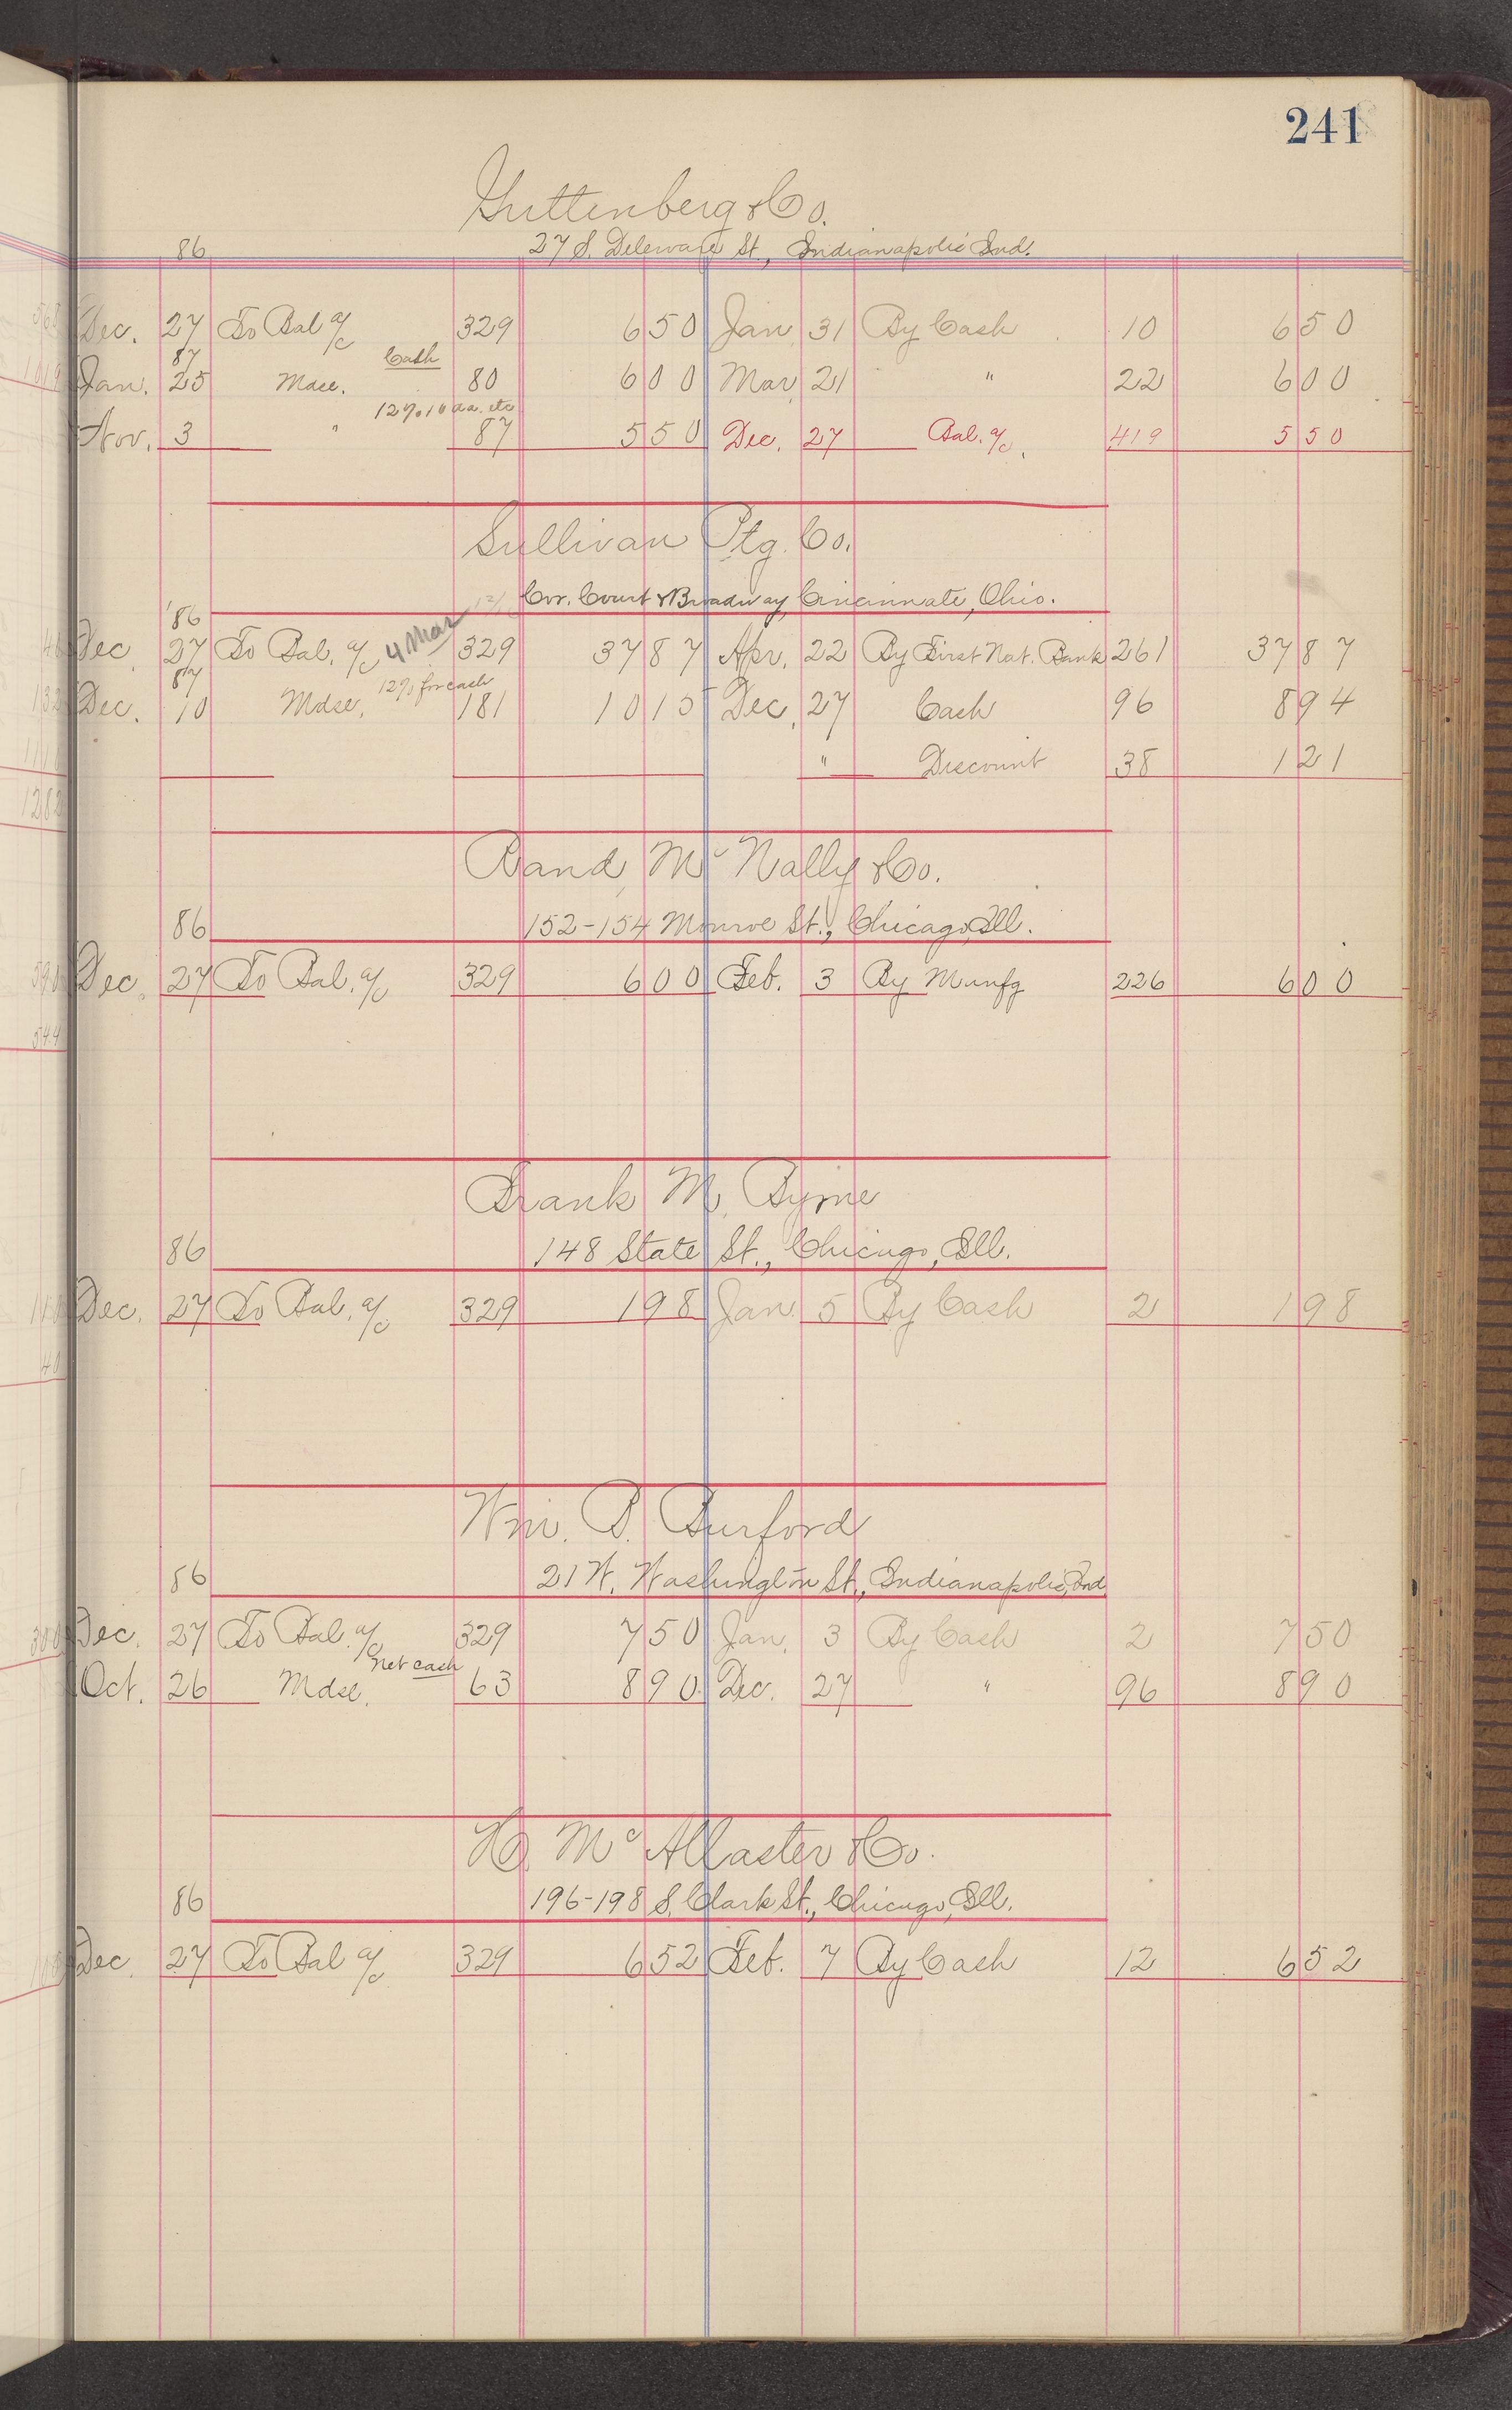 241
Guttenberg & Co.
86 27 S. Deleware St., Indianapolis Ind.
Dec. 27 To Bal a/c 329 6 50 Jan. 31 By Cash 10 6 50
87 Cash
Jan. 25 Mdse. 80 6 00 Mar. 21 " 22 6 00
12% 10 da. etc
Nov. 3 " 87 5 50 Dec. 27 Bal. a/c. 419 5 50
Sullivan Ptg. Co.
Cor. Court & Broadway, Cincinnate, Ohio.
'86
Dec. 27 To Bal. a/c 4 Mar 329 37 87 Apr. 22 By First Nat. Bank 261 37 87
87 12% for cash
Dec. 10 Mdse. 181 10 15 Dec. 27 Cash 96 8 94
" Discount 38 1 21
Rand, McNally & Co.
86 152-154 Monroe St., Chicago, Ill.
Dec. 27 To Bal. a/c 329 6 00 Feb. 3 By Munfg 226 6 00
Frank M. Byrne
86 148 State St., Chicago, Ill.
Dec. 27 To Bal. a/c 329 1 98 Jan. 5 By Cash 2 1 98
Wm. B. Burford
86 21 W. Washington St., Indianapolis, Ind.
Dec. 27 To Bal. a/c 329 7 50 Jan. 3 By Cash 2 7 50
Net cash
Oct. 26 Mdse. 63 8 90 Dec. 27 " 96 8 90
H. McAllaster & Co.
86 196-198 S. Clark St., Chicago, Ill.
Dec. 27 To Bal a/c 329 6 52 Feb. 7 By Cash 12 6 52